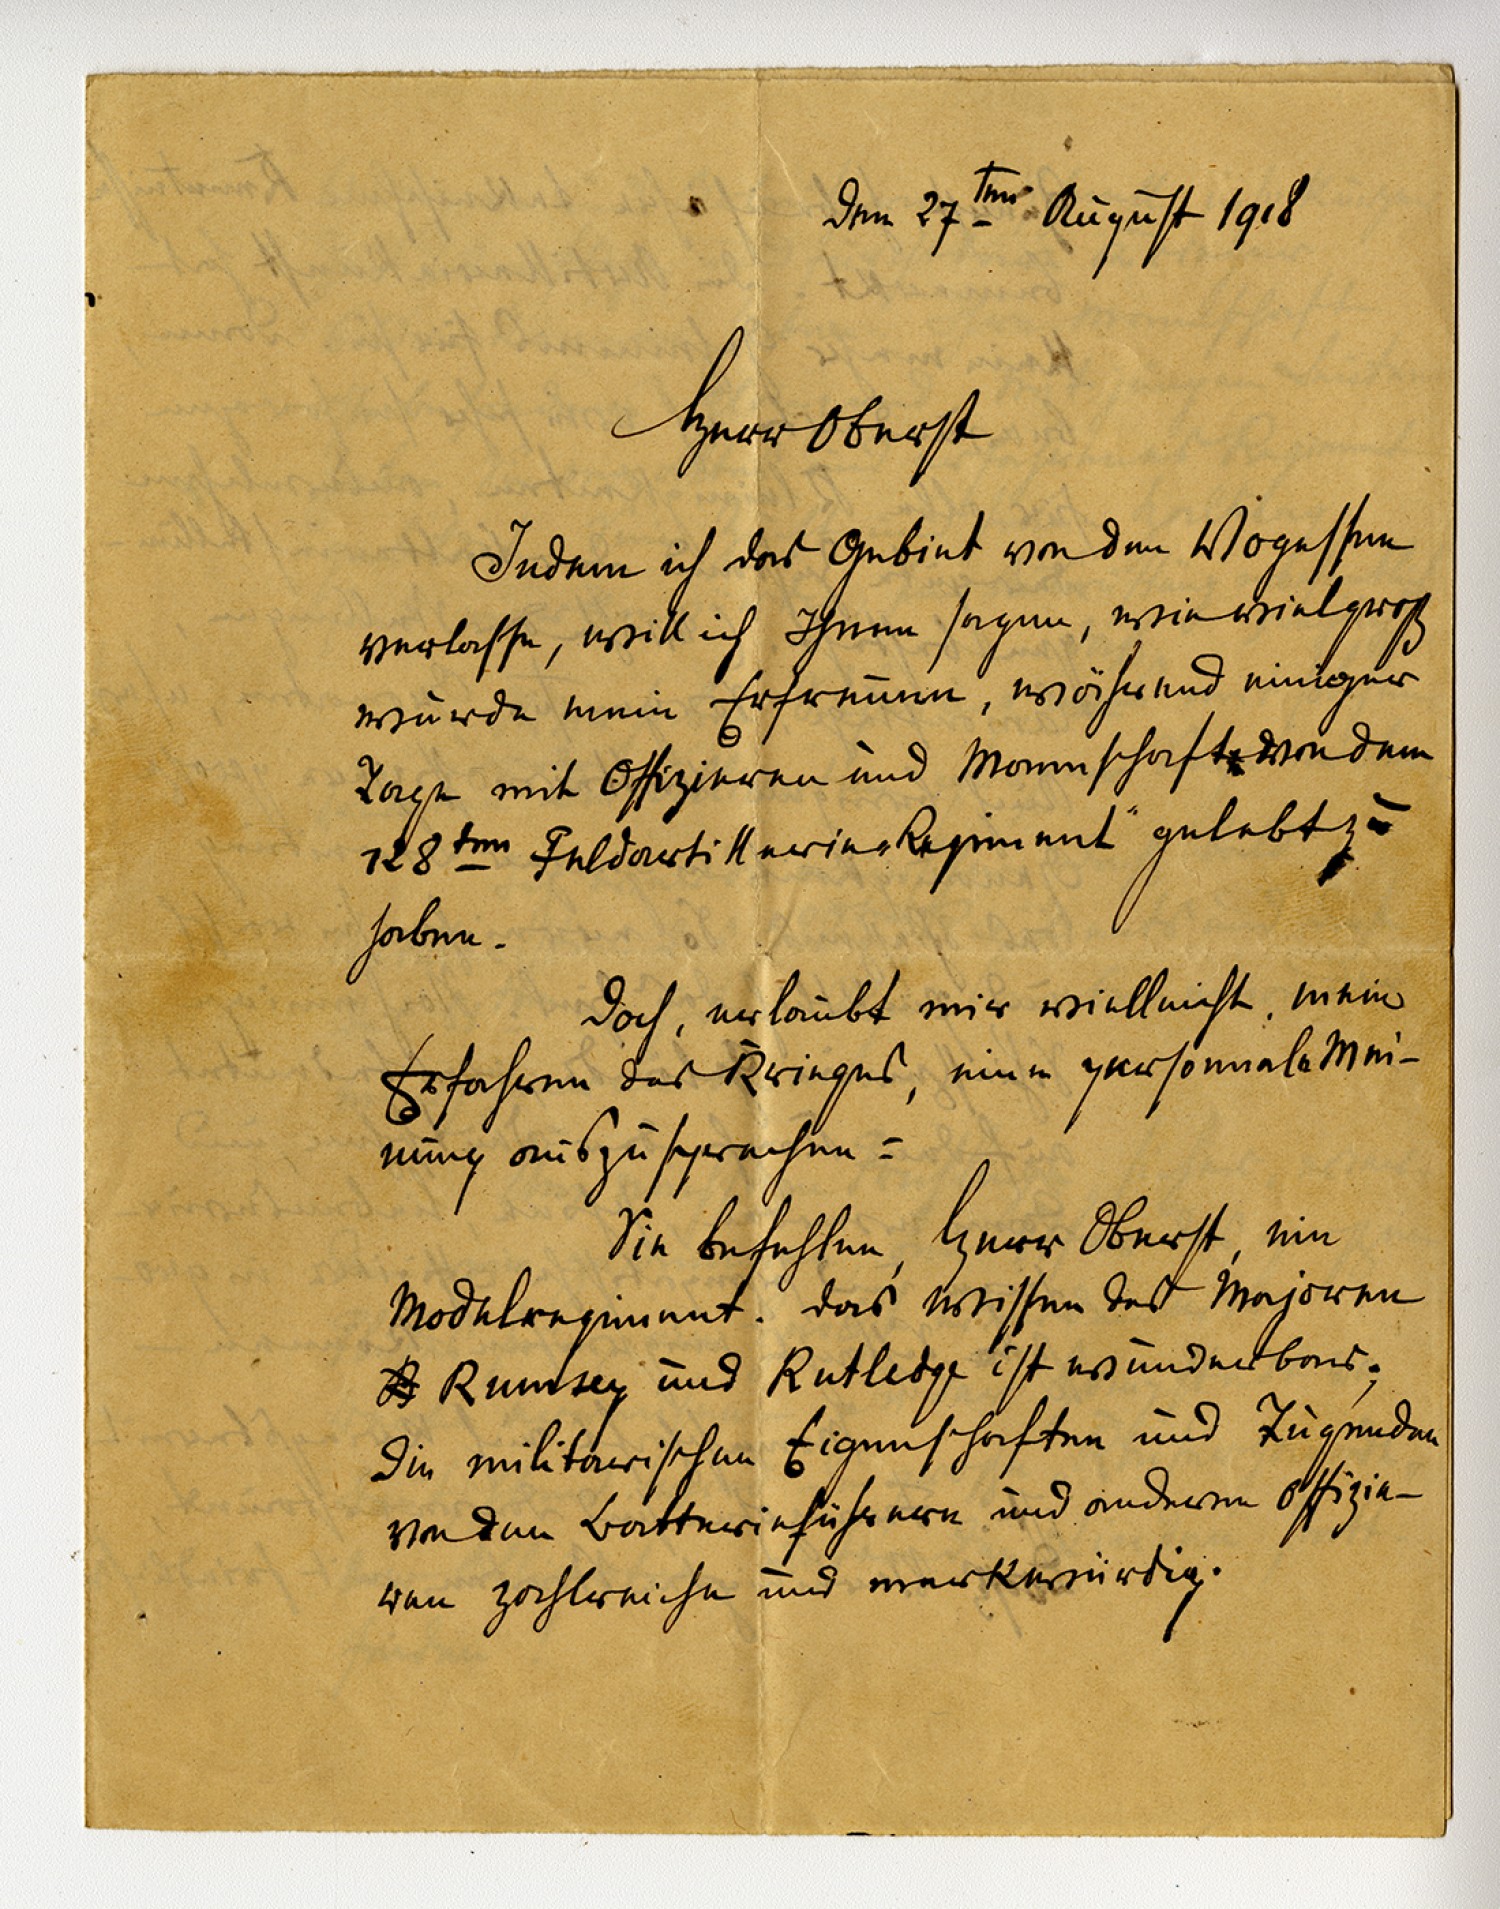 den 27ten August 1918
Herr Oberst
Indem ich das Gebiet von den Wogessen
verlasse, will ich Ihnen sagen, wie viel groß
wurde mein Erfreuen, während einiger
Tage mit Offizieren und Mannschaft von dem
128ten Feldartillerie "Regiment" gelebt zu
haben.
Doch, erlaubt mir vielleicht, mein
Erfahren des Krieges, eine personnale Mei-
nung auszusprechen =
Sie befehlen, Herr Oberst, ein
Modelregiment. das Wissen des Majoren
Rumsey und Rutledge ist wunderbar;
die militarischen Eigenschaften und Tugenden
von den Batterieführern und anderen Offizie-
ren zahlreiche und merkwürdig.